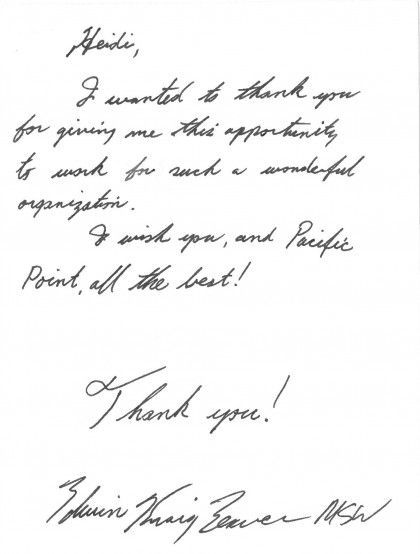 Heidi,
I wanted to thank you
for giving me this opportunity
to work for such a wonderful
organization.
I wish you, and Pacific
Point, all the best!
Thank you!
Edwin Kraig MSW